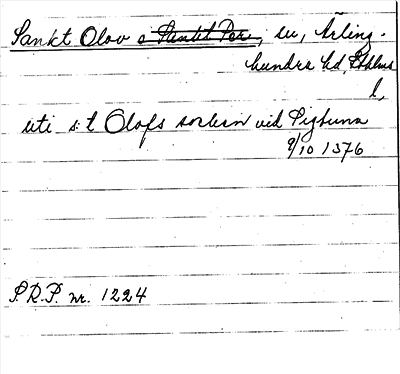 Sankt Olov o Sankt Per, sn, Ärling-
hundra hd, Sthlms
l,
uti s:t Olofs soclum vid Sigtuna
9/10 1376
S.R.P. nr. 1224